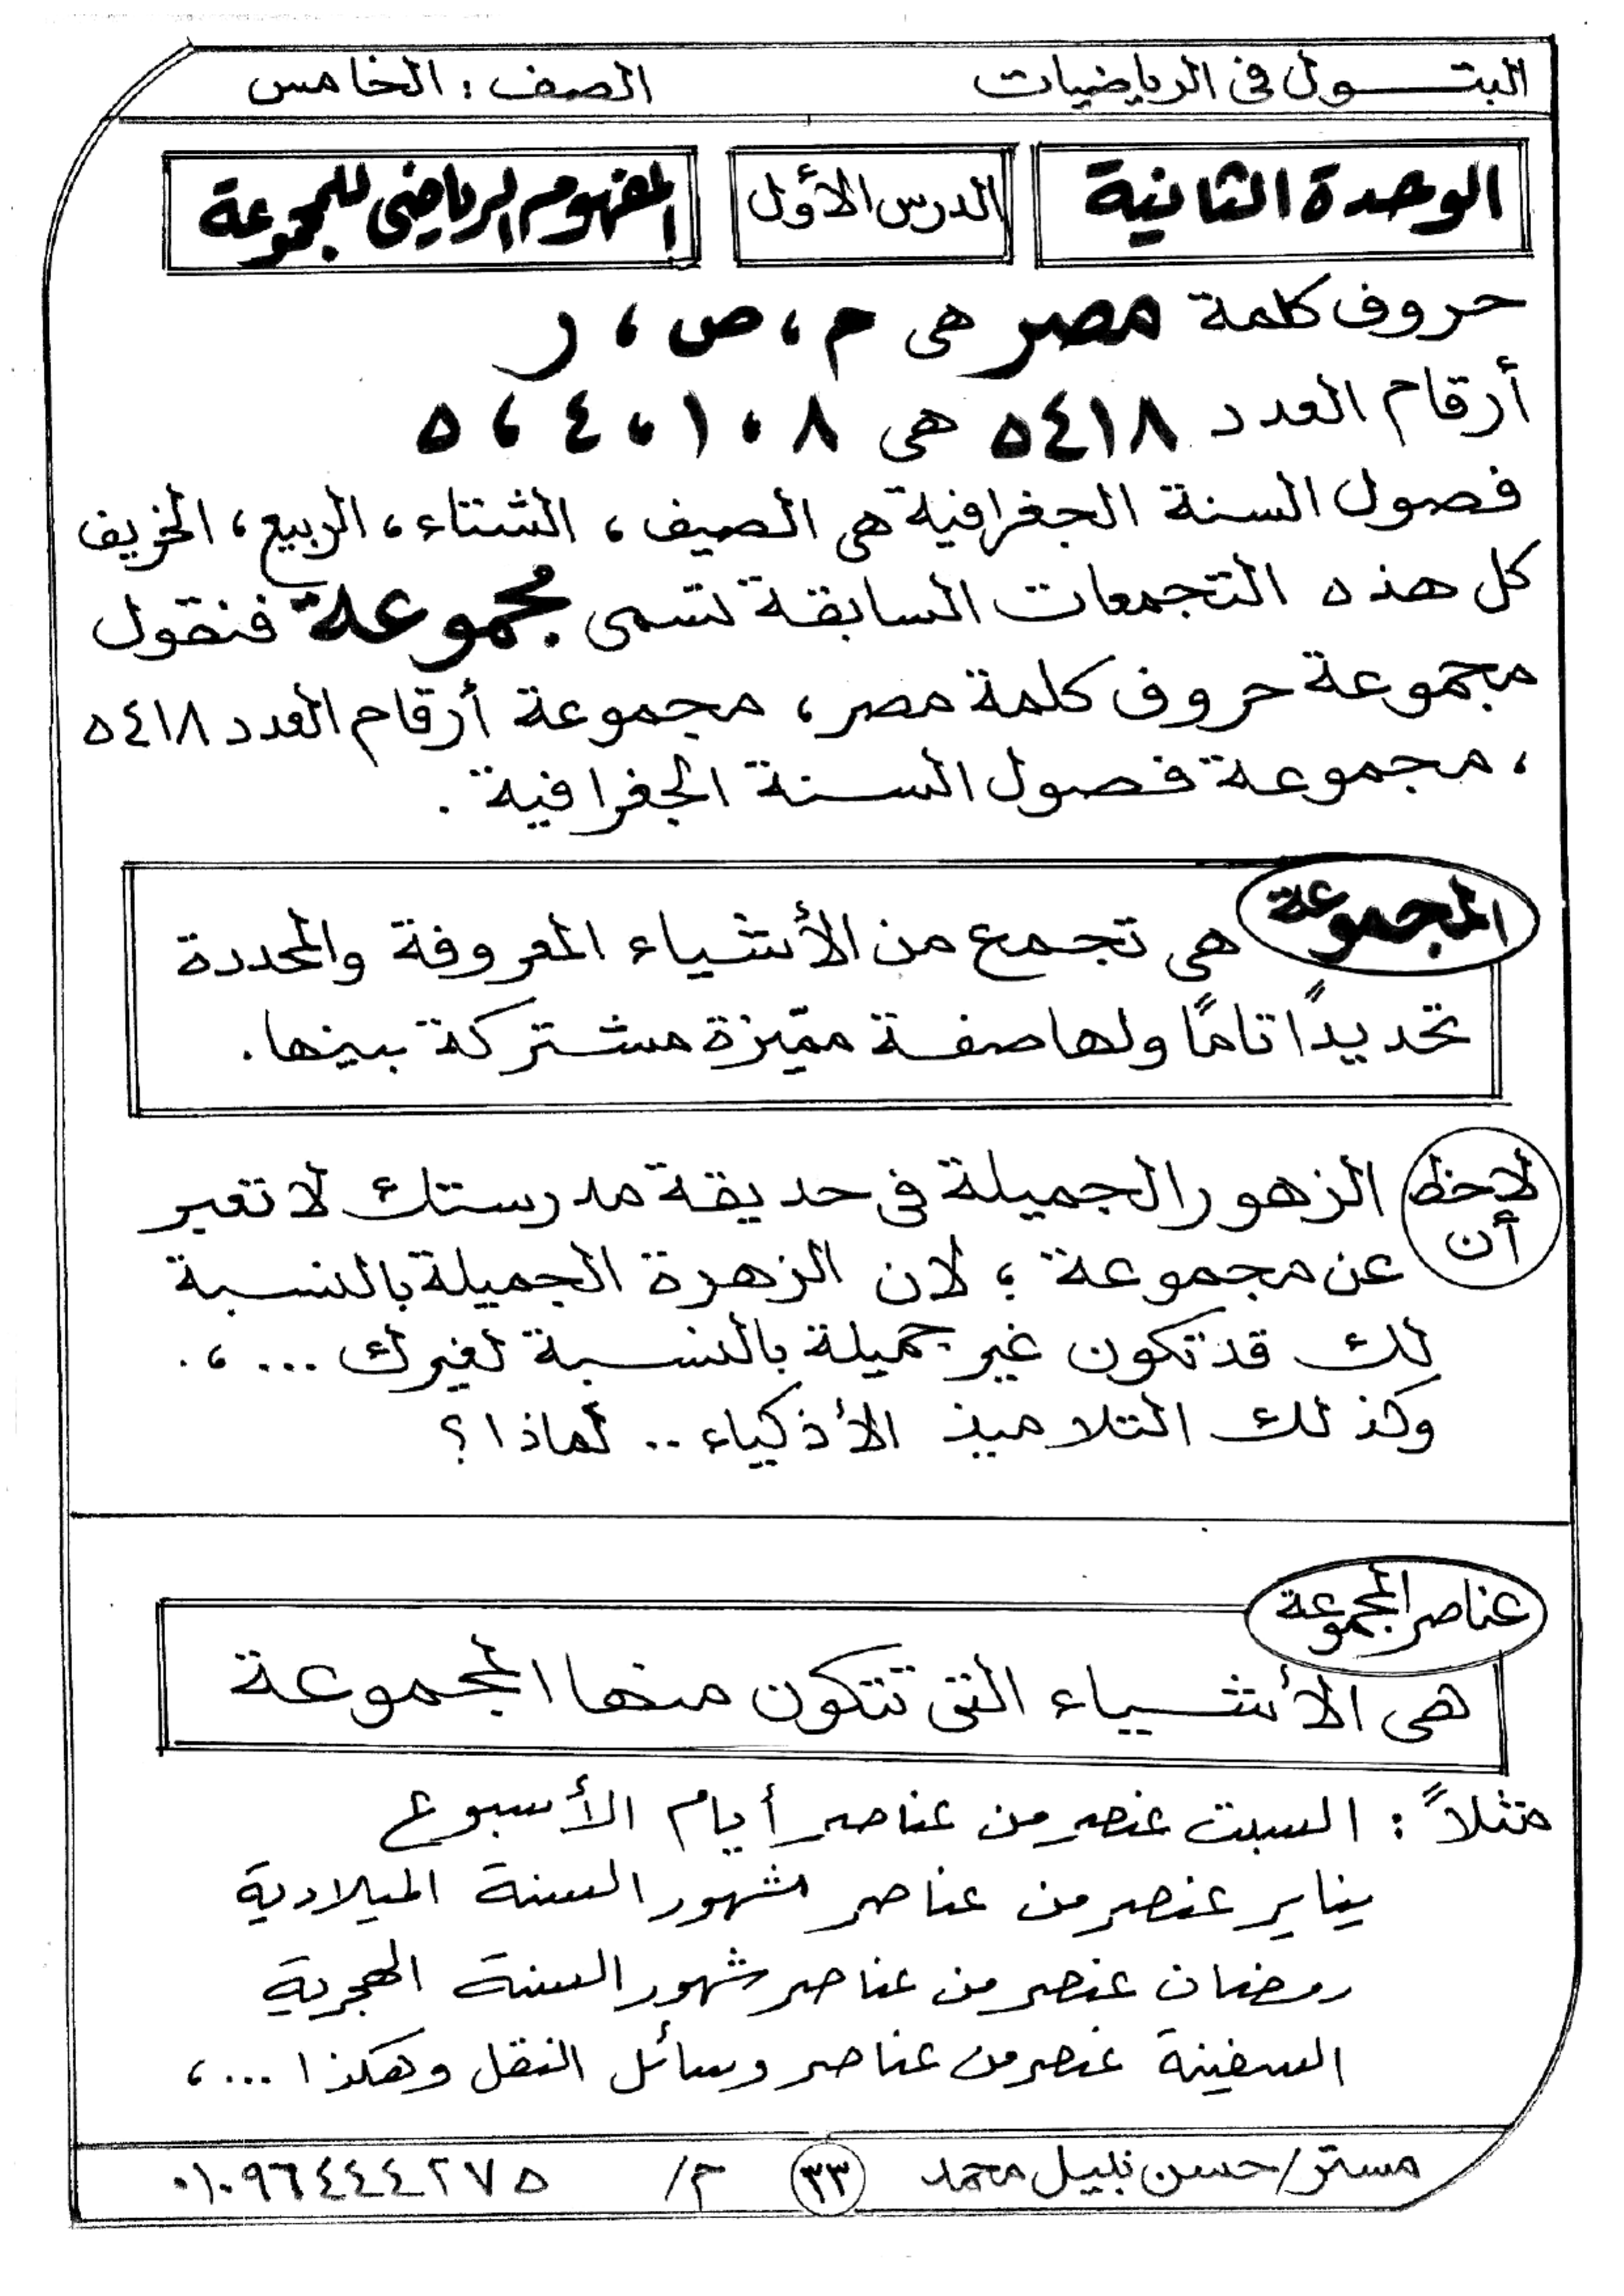 البتـــول فى الرياضيات الصف : الخامس
الوحدة الثانية الدرس الأول المفهوم الرياضى للمجموعة
حروف كلمة مصر هى م ، ص ، ر
أرقام العدد ٥٤١٨ هى ٨ ، ١ ، ٤ ، ٥
فصول السنة الجغرافية هى الصيف ، الشتاء ، الربيع ، الخريف
كل هذه التجمعات السابقة تسمى مجموعة فنقول
مجموعة حروف كلمة مصر ، مجموعة أرقام العدد ٥٤١٨
، مجموعة فصول السنة الجغرافية .
المجموعة هى تجمع من الأشياء المعروفة والمحددة
تحديداً تاماً ولها صفة مميّزة مشتركة بينها .
لاحظ أن الزهور الجميلة فى حديقة مدرستك لا تعبر
عن مجموعة ؛ لان الزهرة الجميلة بالنسبة
لك قد تكون غير جميلة بالنسبة لغيرك ... ، .
وكذلك التلاميذ الأذكياء .. لماذا ؟
عناصر المجموعة
هى الأشياء التى تتكون منها المجموعة
مثلاً : السبت عنصر من عناصر أيام الأسبوع
يناير عنصر من عناصر شهور السنة الميلادية
رمضان عنصر من عناصر شهور السنة الهجرية
السفينة عنصر من عناصر وسائل النقل وهكذا ... ،
مستر/ حسن نبيل محمد ٣٣ م/ ٠١٠٩٦٤٤٤٢٧٥